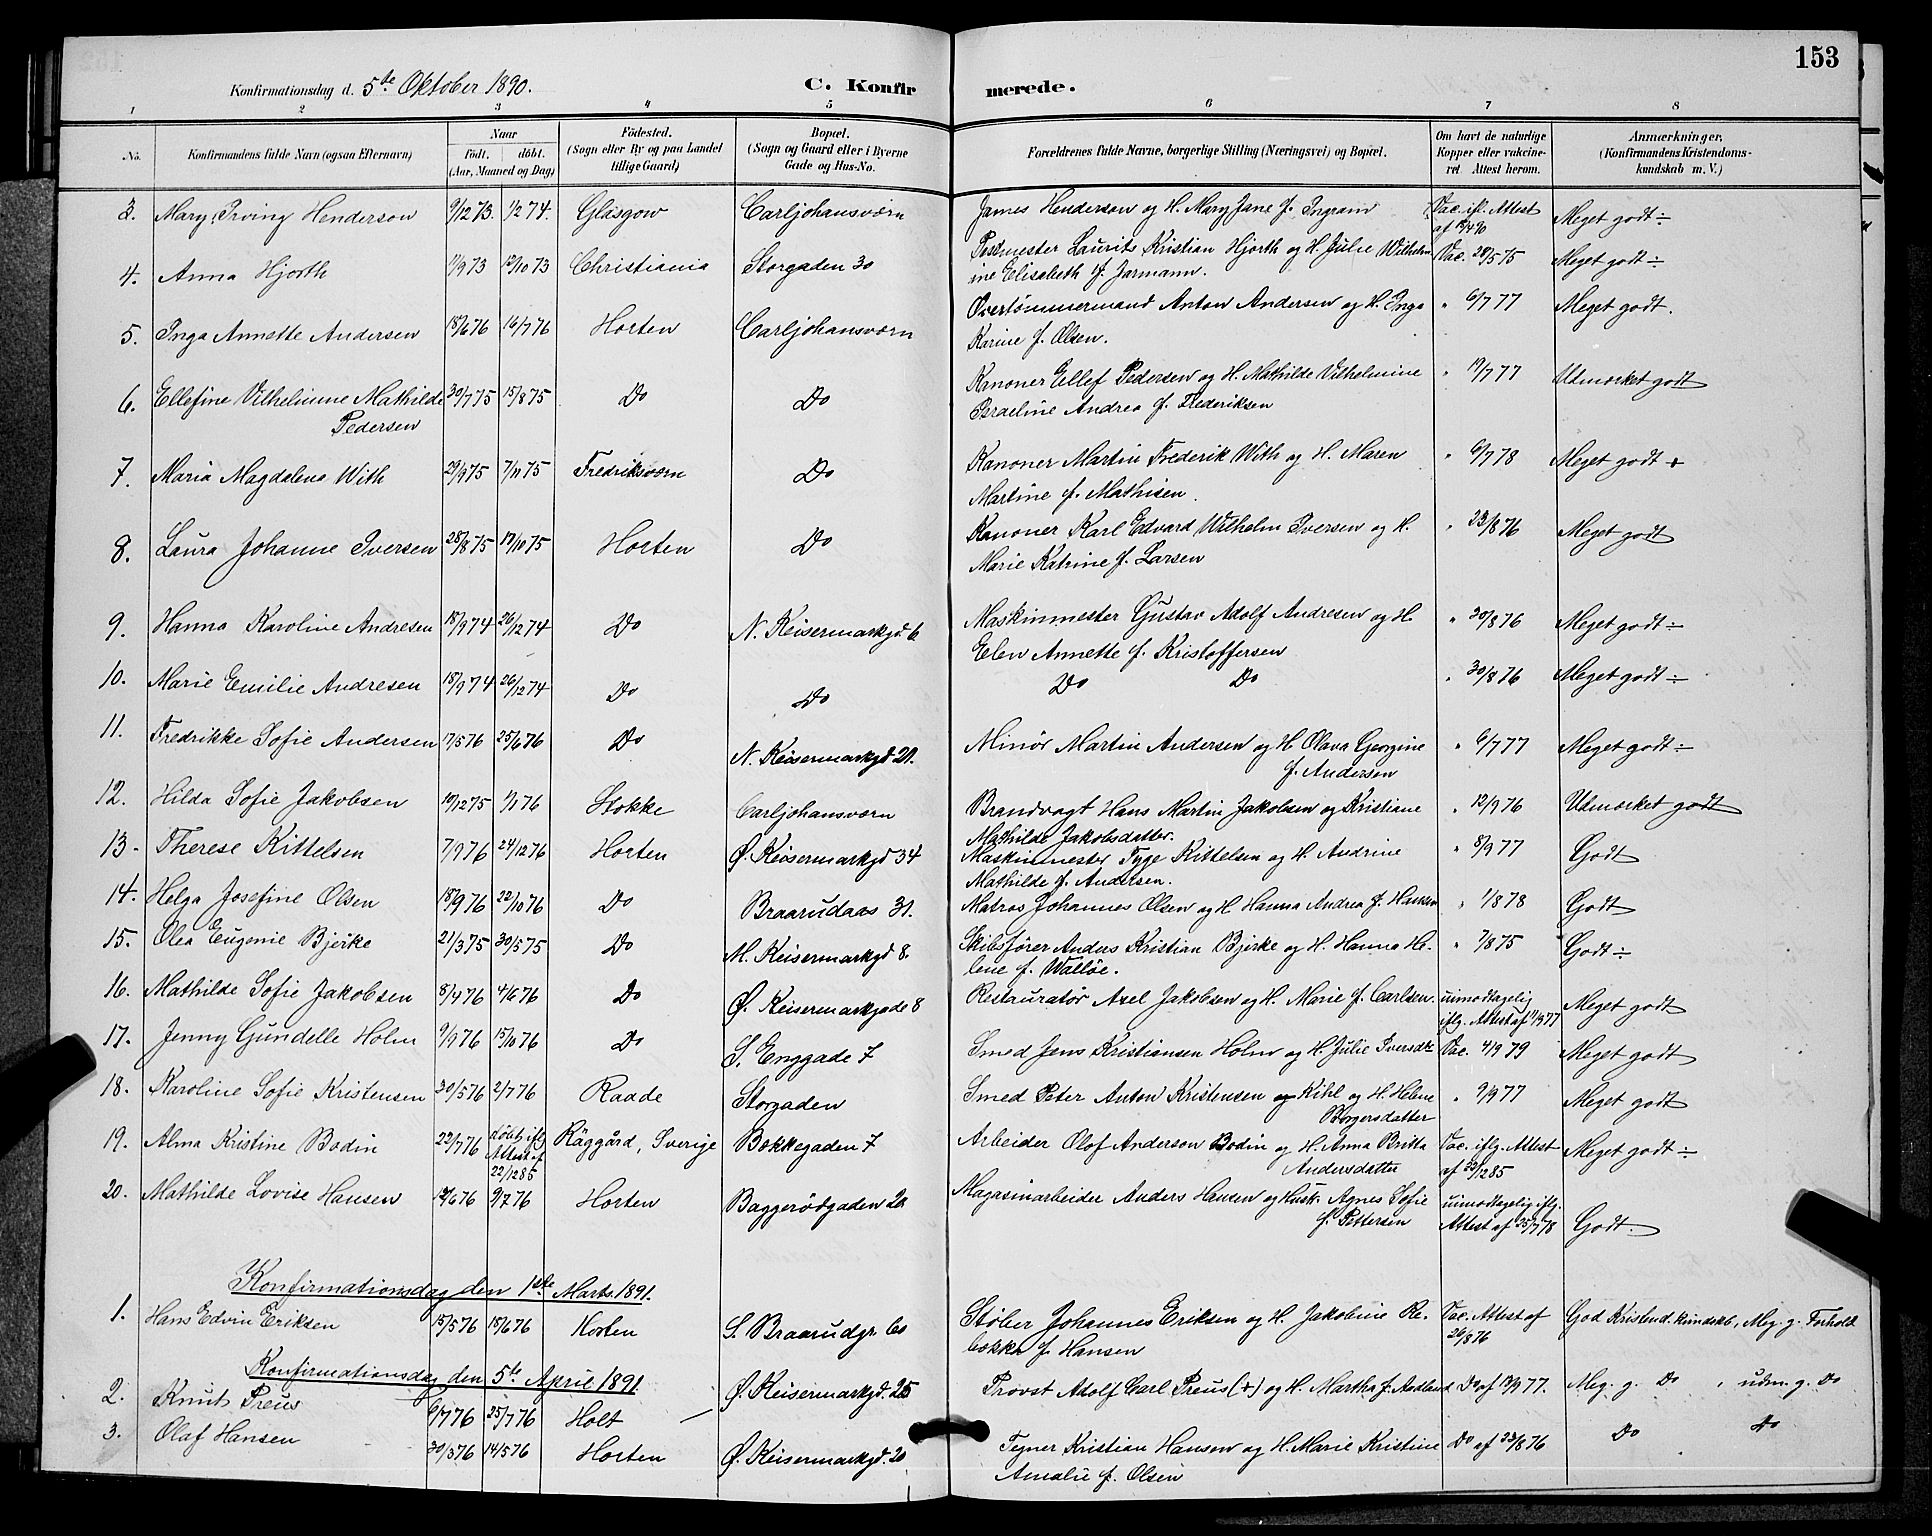 153
Konfirmationsdag d. 5te Oktober 1890.
C. Konfirmerede.
1 2 3 4 5 6 7 8
No. Konfirmandens fulde Navn (ogsaa Efternavn) Naar født. døbt. (Aar, Maaned og Dag) Fødested. (Sogn eller By og paa Landet tillige Gaard) Bopæl. (Sogn og Gaard eller i Byerne Gade og Hus-No. Forældrenes fulde Navne, borgerlige Stilling (Næringsvei) og Bopæl. Om havt de naturlige Kopper eller vakcineret Attest herom. Anmærkninger. (Konfirmandens Kristendomskundskab m. V.)
3. Mary Irving Henderson 9/12 73. 1/2 74. Glasgow Carljohansværn James Henderson og H. Mary Jane f. Ingram Vac. ifl. Attest af Meget godt ÷
4. Anna Hjorth 11/9 73 12/10 73 Christiania Storgaden 30 Postmester Laurits Kristian Hjorth og H. Julie Wilhelm
ine Elisabeth f. Jarmann. Vac. 28/5 75 Meget godt ÷
5. Inga Annette Andersen 18/6 76 16/7 76 Horten Carljohansværn Overtømmermand Anton Andersen og H. Inga
Karine f. Olsen. " 6/7 77 Meget godt.
6. Ellefine Vilhelmine Mathilde
Pedersen 30/7 75 15/8 75 Do Do Kanoner Ellef Pedersen og H. Mathilde Vilhelmine
Israeline Andrea f. Frederiksen " 19/7 77 Udmærket godt
7. Maria Magdalena With 29/9 75 7/11 75 Fredriksværn Do Kanoner Martin Frederik With og H. Maren
Martine f. Mathisen. " 6/7 78 Meget godt +
8. Laura Johanne Iversen 28/8 75 17/10 75 Horten Do Kanoner Karl Edvard Wilhelm Iversen og H.
Marie Katrine f. Larsen " 23/8 76 Meget godt
9. Hanna Karoline Andresen 18/9 74 26/12 74 Do N. Keisermarkgd 6 Maskinmester Gustav Adolf Andresen og H.
Elen Annette f. Kristoffersen " 30/8 76 Meget godt ÷
10. Marie Emilie Andresen 18/9 74 26/12 74 Do Do Do Do " 30/8 76 Meget godt ÷
11. Fredrikke Sofie Andersen 17/5 76 25/6 76 Do N. Keisermarkgd 21. Minør Martin Andersen og H Olava Georgine
f. Andersen " 6/7 77 Meget godt ÷
12. Hilda Sofie Jakobsen 10/12 75 1/1 76 Stokke Carljohansværn Brandvagt Hans Martin Jakobsen og Kristiane
Mathilde Jakobsdatter. " 12/9 76 Udmærket godt
13. Therese Kittelsen 7/9 76 24/12 76 Horten Ø. Keisermarkgd 34 Maskinmester Tyge Kittelsen og H. Andrine
Mathilde f. Andersen. " 8/9 77 Godt
14. Helga Josefine Olsen 18/9 76 22/10 76 Do Braarudaas 31. Matros Johannes Olsen og H Hanna Andrea f. Hansen " 1/8 78 Godt
15. Olea Eugenie Bjerke 21/3 75 30/5 75 Do M. Keisermarkgd 8. Skibsfører Anders Kristian Bjerke og H. Hanna He-
lene f. Walløe. " 7/8 75 Godt ÷
16. Mathilde Sofie Jakobsen 8/4 76 4/6 76 Do Ø. Keisermarkgade 8 Restauratør Axel Jakobsen og H. Marie f. Carlsen. uimodtagelig
iflg. Attest af 1/9 77 Meget godt
17. Jenny Gundelle Holm 9/9 76 15/10 76 Do S. Enggade 7 Smed Jens Kristiansen Holm og H. Julie Iversdtr Vac. 4/9 79 Meget godt
18. Karoline Sofie Kristensen 30/5 76 2/7 76 Raade Storgaden Smed Peter Anton Kristensen og Kihl og H. Helene
Borgersdatter " 9/9 77 Meget godt
19. Alma Kristine Bodin 22/7 76 døbt iflg
Attest af
22/12 85 Räggård, Sverige Bakkegaden 7 Arbeider Olof Anderson Bodin og H. Anna Britta
Andersdatter Vac. iflg. Attest
af 22/12 85 Meget godt ÷
20. Mathilde Lovise Hansen 12/6 76 9/7 76 Horten Baggerødgaden 20 Magasinarbeider Anders Hansen og Hust. Agnes Sofie
f. Pettersen uimodtagelig iflg.
Attest af 25/7 78 Godt.
Konfirmationsdag den 1ste Marts 1891.
1. Hans Edvin Eriksen 15/5 76 18/6 76 Horten S. Braarudgr. 60 Støber Johannes Eriksen og H. Jakobine Re-
bekka f. Hansen Vac. Attest af
26/8 76 God Kristend. kundskb, Meg. g. Forhold
Konfirmationsdag den 5te April 1891
2. Knut Preus 6/7 76 25/7 76 Holt Ø. Keisermarkgd. 25 Provst Adolf Carl Preus (+) og H. Martha f. Aadland Do af 13/9 77. Meg. g. Do , udm. g. Do
3. Olaf Hansen 30/3 76 14/5 76 Horten Ø. Keisermarkgd. 20 Tegner Kristian Hansen og H. Marie Kristine
Amalie f. Olsen Do af 23/8 76 Do Do